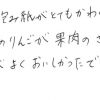 包み紙がとてもかわ
のりんごが果肉のさ
よくおいしかったで